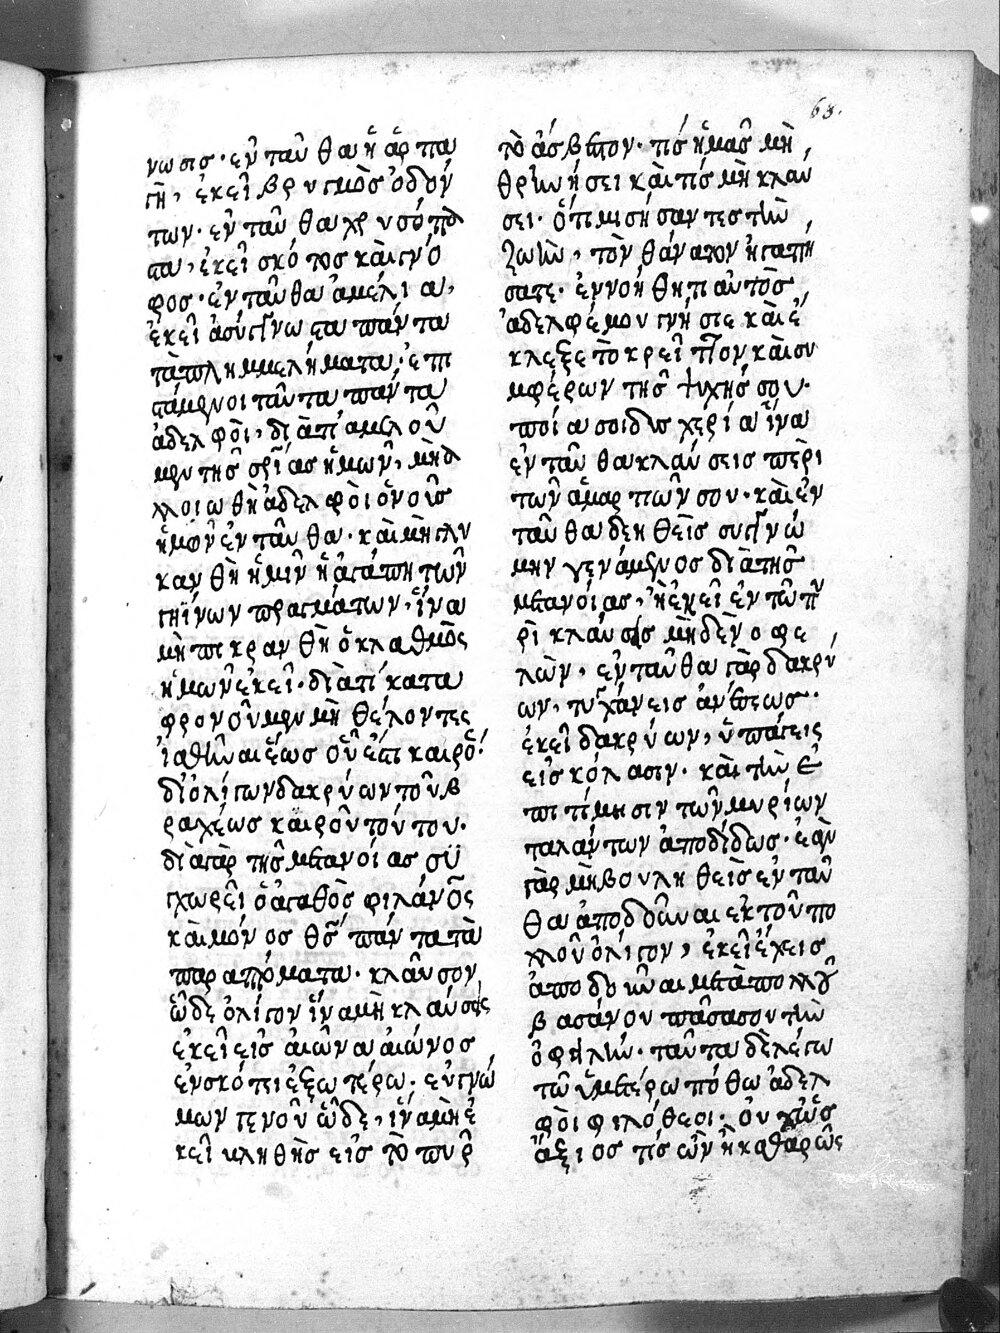 63.
νωσις· ἐν ταῦθα ἡ ἁρπα
γὴ, ἐκεῖ βρυγμὸς ὀδόν
των· ἐν ταῦθα χρυσόπα
στα, ἐκεῖ σκότος καὶ γνό
φος· ἐν ταῦθα ἀμέλια,
ἐκεῖ ἀσύγγνωστα πάντα
τὰ πλημμελήματα· ἐπι
στάμενοι ταῦτα πάντα
ἀδελφοὶ, διατί ἀμελοῦ
μεν τῆς σρίας ἡμῶν, μὴ ἀ
λλοιωθῆ ἀδελφοὶ ὁ νοῦς
ἡμῶν ἐν ταῦθα· καὶ μὴ γλυ
κανθῆ ἡμῖν ἡ ἀγάπη τῶν
γηΐνων πραγμάτων, ἵνα
μὴ πικρανθῆ ὁ κλαθμὸς
ἡμῶν ἐκεῖ· διατί κατα
φρονοῦμεν μὴ θέλοντες
ἰαθῆναι ἕως οὗ ἐστι καιρὸς·
δι ὀλίγων δακρύων τοῦ β
ραχέως καιροῦ τούτου·
διὰ γὰρ τῆς μετανοίας συ
γχωρεῖ ὁ ἀγαθὸς φιλάνος
καὶ μόνος θς πάντα τὰ
παραπτώματα· κλαῦσον
ὧδε ὀλίγον ἵνα μὴ κλαύσης
ἐκεῖ εἰς αἰῶνα αἰῶνος
ἐν σκότι ἐξωτέρω· εὐγνώ
μων γενοῦ ὧδε, ἵνα μὴ ἐ
κεῖ κληθῆς εἰς τὸ πυρ
τὸ ἄσβεστον· τίς ἡμᾶς μὴ
θρηνήσει καὶ τίς μὴ κλαύ
σει· ὅτι μισήσαντες τὴν
ζωὴν, τὸν θάνατον ἠγαπή
σατε· ἐννοήθητι αὐτὸς
ἀδελφέ μου γνήσιε καὶ ἐ
κλεξε τὸ κρεῖττον καὶ συ
μφέρων τῆς ψυχῆς σου·
ποία σοι δυσχέρια ἵνα
ἐν ταῦθα κλαύσεις περὶ
τῶν ἁμαρτιῶν σου· καὶ ἐν
ταῦθα δεηθεῖς συγγνώ
μην γενάμενος διὰ τῆς
μετανοίας, ἢ ἐκεῖ ἐν τῶ πυ
ρὶ κλαύσεις μηδὲν ὀφε
λῶν, ἐν ταῦθα γὰρ δακρύ
ων, τυγχάνεις ἀνέσεως·
ἐκεῖ δακρύων, ὑπάγεις
εἰς κόλασιν· καὶ τὴν ἐ
πιτίμησιν τῶν μυρίων
ταλάντων ἀποδίδως· ἐὰν
γὰρ μὴ βουληθεὶς ἐν ταῦ
θα ἀποδοῦναι ἐκ τοῦ πο
λλοῦ ὀλίγον, ἐκεῖ ἔχεις
ἀποδοῦναι μετὰ πολλοῦ
βασάνου πᾶσασον τὴν
ὀφηλὴν· ταῦτα δὲ λέγω
τῶ ὑμετέρω πόθω ἀδελ
φοὶ φιλόθεοι· οὐχ ὡς
ἄξιος τίς ὢν ἢ καθαρῶς